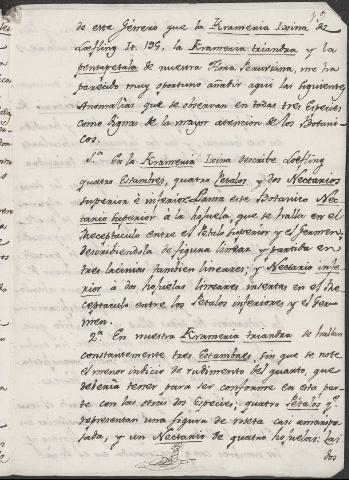 de este Género que la Krameria Ixina de
Loefling It. 195, la Krameria triandra y la
pentapetala de nuestra Flora Peruviana, me ha
parecido muy oportuno añadir aqui las siguientes
Anomalías que se observan en todas tres Especies
como dignas de la mayor atencion de los Botani-
cos.
1.ª En la Krameria Ixina describe Loefling
quatro Estambres, quatro Petalos y dos Nectarios
superior é inferior. Llama este Botanico Nec-
tario superior á la hojuela, que se halla en el
Receptaculo entre el Petalo superior y el Germen,
describiendola de figura linear y partida en
tres lacinias tambien lineares; y Nectario infe-
rior á dos hojuelas lineares insertas en el Re-
ceptaculo entre los Petalos inferiores y el Ger-
men.
2.ª En nuestra Krameria triandra se hallan
constantemente tres Estambres, sin que se note
el menor indicio de rudimento del quarto, que
debería tener para ser conforme en esta par-
te con las otras dos Especies; quatro Petalos q.e
representan una figura de roseta casi amaripo-
sada, y un Nectario de quatro hojuelas: las
dos